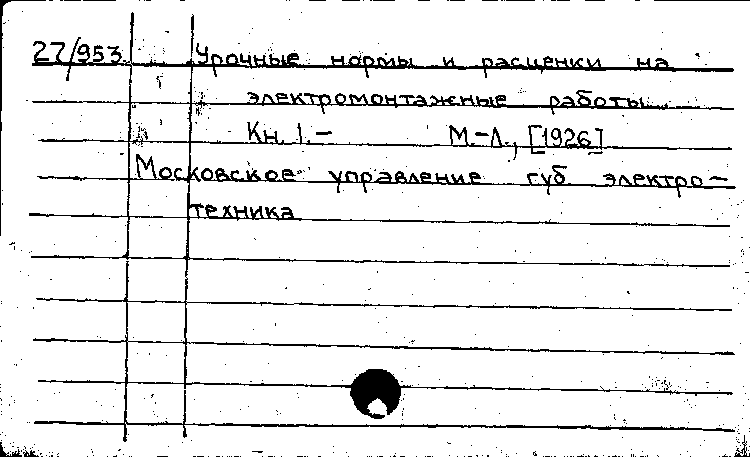 27/953 Урочные нормы и расценки на
электромонтажные работы.
Кн. 1.— М.-Л., [1926]
Московское управление губ. электро-
техника